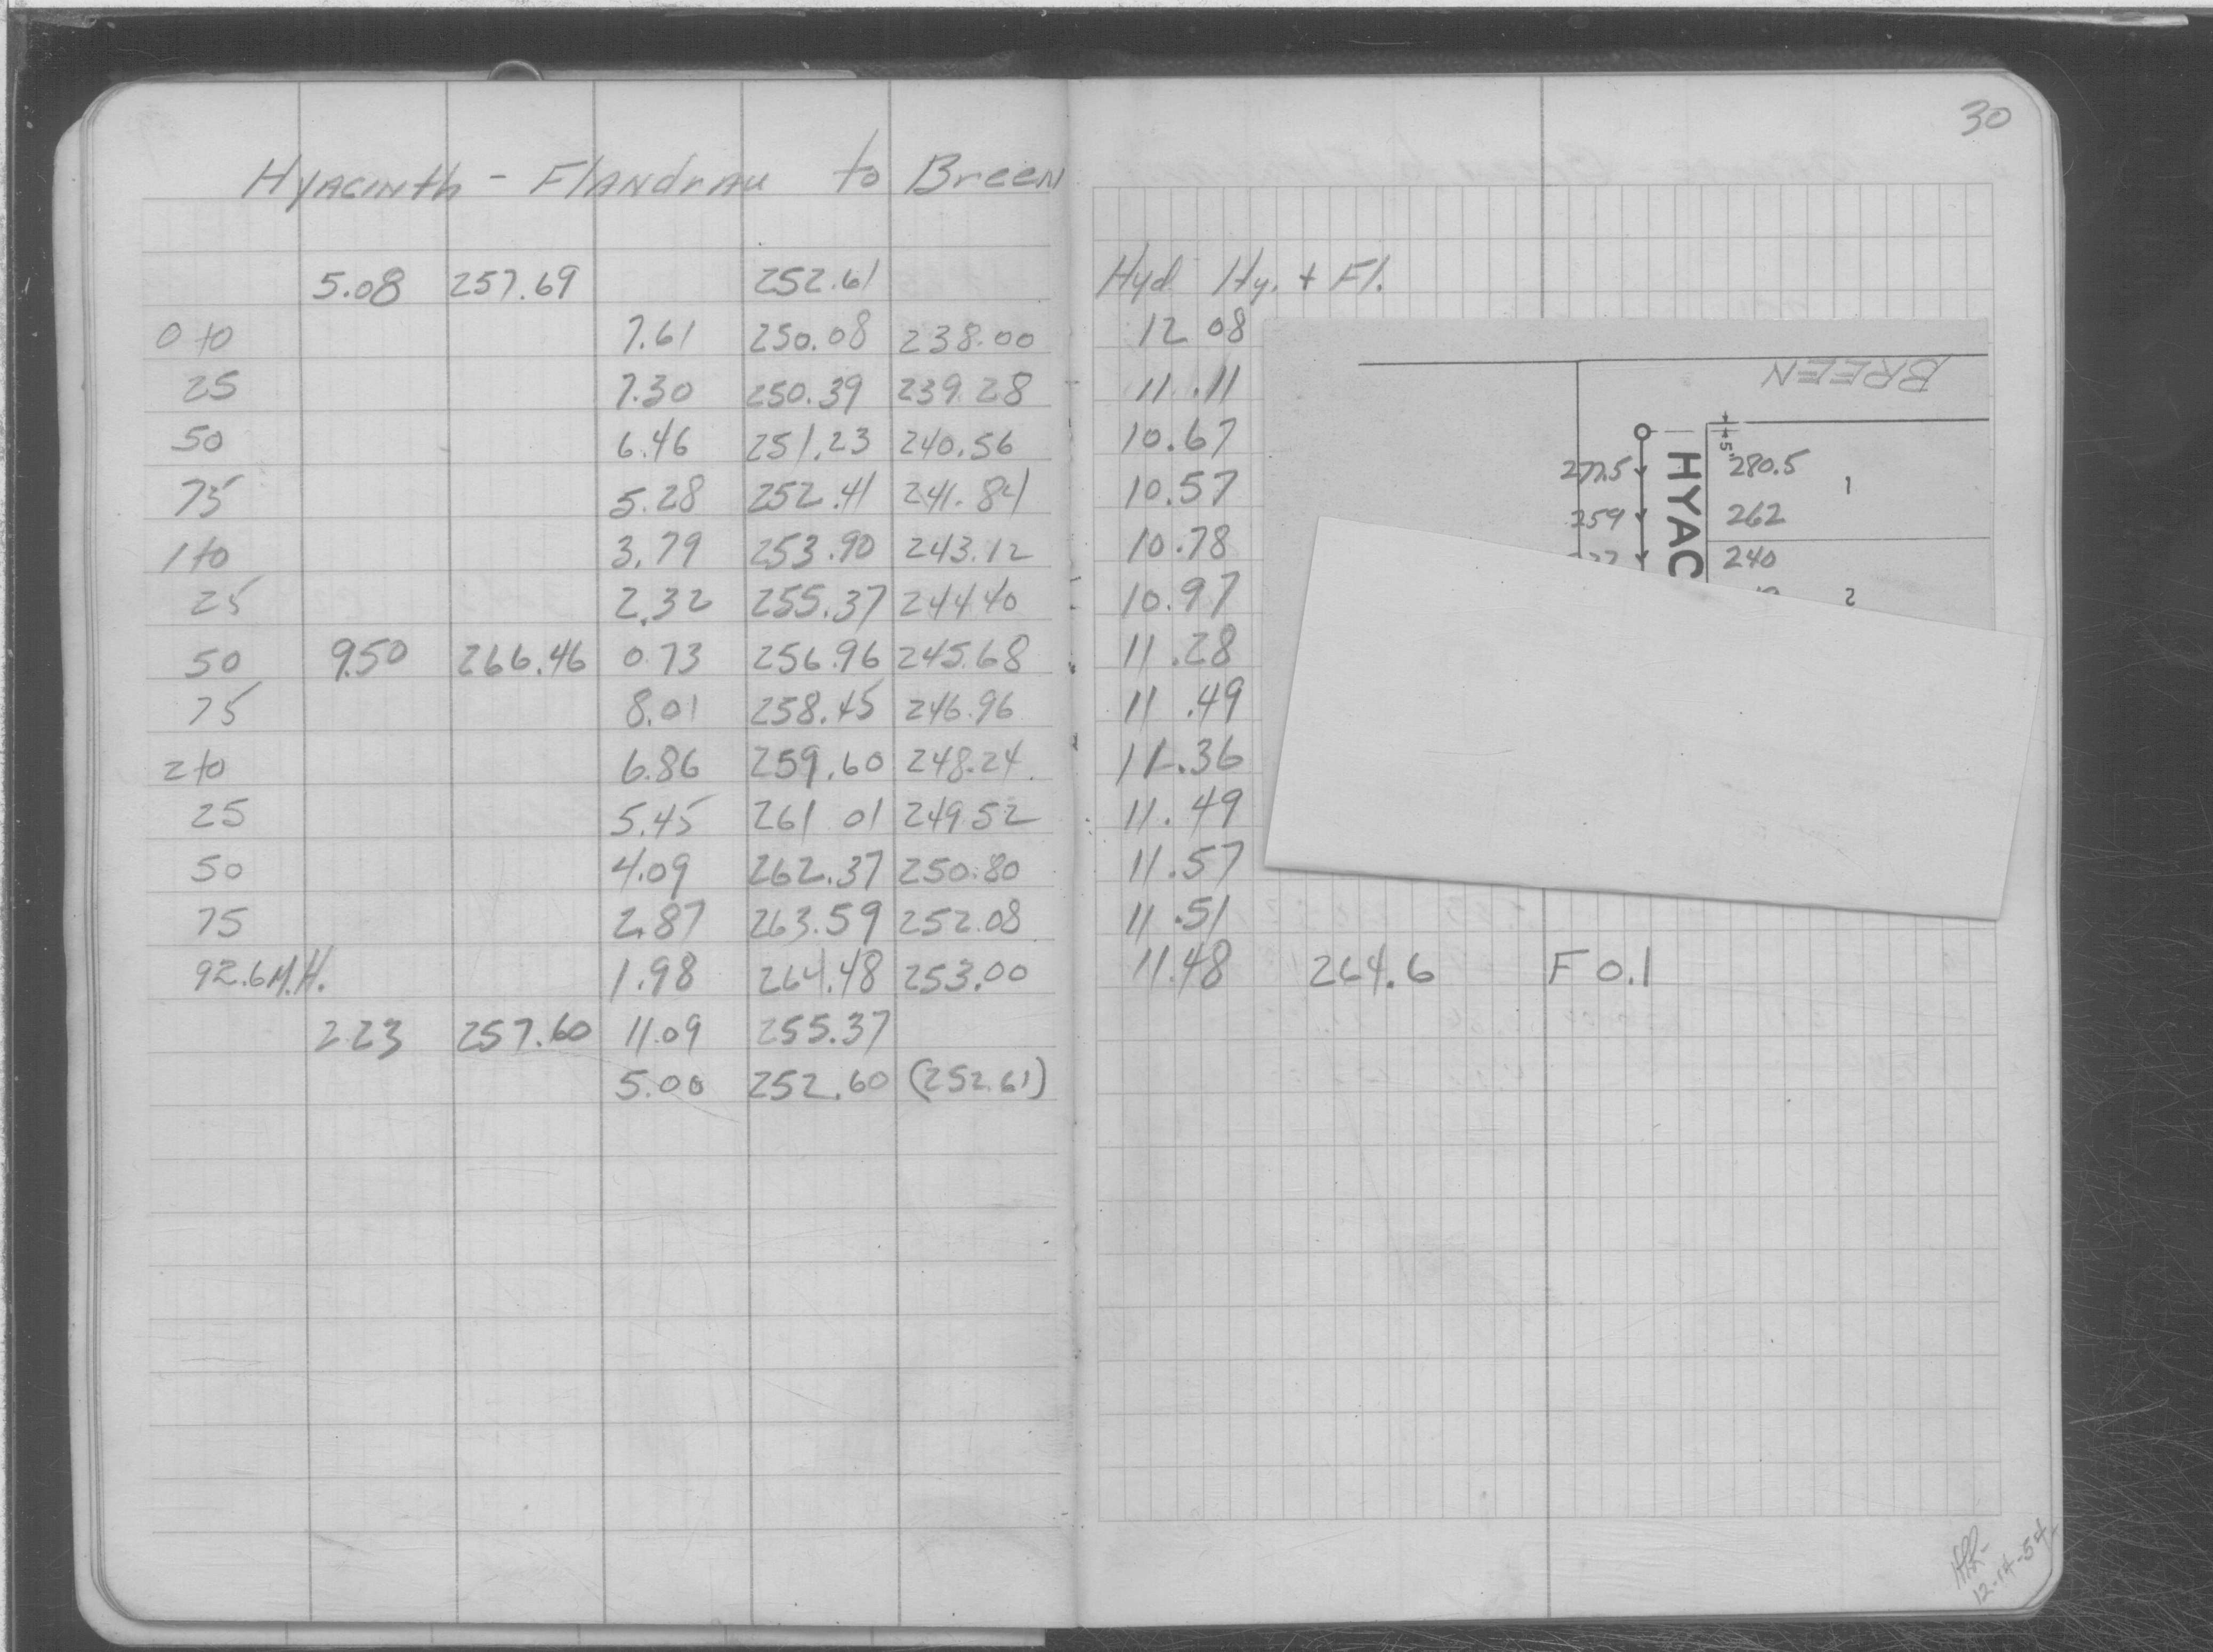 30
Hyacinth - Flandrau to Breen
5.08 257.69 252.61 Hyd Hy. + Fl.
0+0 7.61 250.08 238.00 12 08
25 7.30 250.39 239.28 11.11
50 6.46 251.23 240.56 10.67
75 5.28 252.41 241.84 10.57
1+0 3.79 253.90 243.12 10.78
25 2.32 255.37 244.40 10.97
50 9.50 266.46 0.73 256.96 245.68 11.28
75 8.01 258.45 246.96 11.49
2+0 6.86 259.60 248.24 11.36
25 5.45 261 01 249.52 11.49
50 4.09 262.37 250.80 11.57
75 2.87 263.59 252.08 11.51
92.6 M.H. 1.98 264.48 253.00 11.48 264.6 F 0.1
2.23 257.60 11.09 255.37
5.00 252.60 (252.61)
BREEN
5'
HYAC
277.5 280.5 1
259 262
240
2
12-14-54